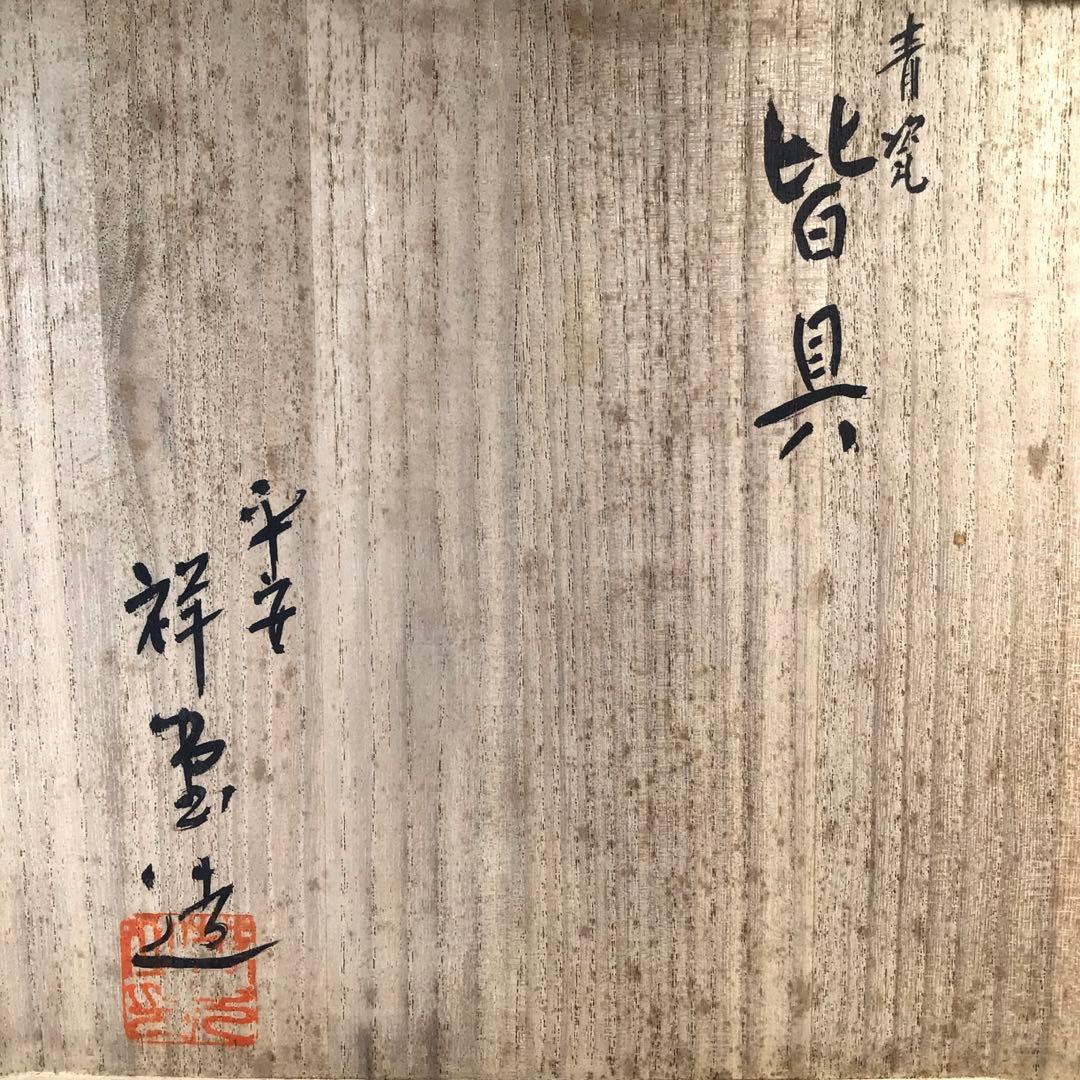 青瓷
皆具
平安
祥堂造